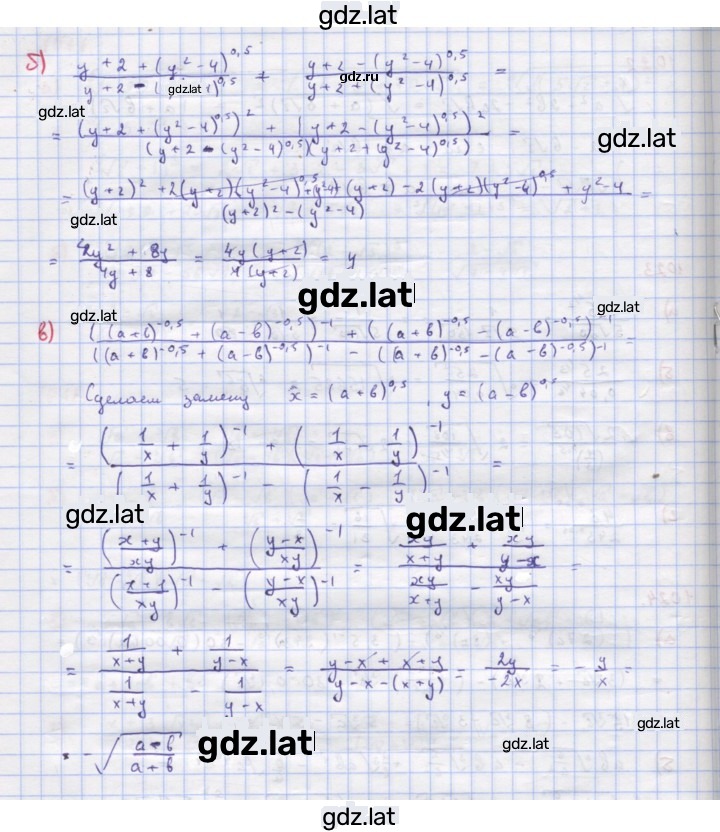 gdz.lat
б) (y+2+(y²-4)^0,5)/(y+2-( gdz.lat 4)^0,5) + (y+2-(y²-4)^0,5)/(y+2+(y²-4)^0,5) =
gdz.ru
gdz.lat
= ((y+2+(y²-4)^0,5)² + (y+2-(y²-4)^0,5)²)/((y+2-(y²-4)^0,5)(y+2+(y²-4)^0,5)) =
gdz.lat
= ((y+2)²+2(y+2)(y²-4)^0,5+(y²-4)+(y+2)-2(y+2)(y²-4)^0,5+y²-4)/((y+2)²-(y²-4)) =
gdz.lat
= (2y²+8y)/(4y+8) = 4y(y+2)/4(y+2) = y
gdz.lat
gdz.lat
gdz.lat
в) (((a+b)^-0,5+(a-b)^-0,5)^-1+((a+b)^-0,5-(a-b)^-0,5)^-1)/(((a+b)^-0,5+(a-b)^-0,5)^-1-((a+b)^-0,5-(a-b)^-0,5)^-1) =
Сделаем замену x=(a+b)^0,5, y=(a-b)^0,5
gdz.lat
= ((1/x+1/y)^-1+(1/x-1/y)^-1)/((1/x+1/y)^-1-(1/x-1/y)^-1) =
gdz.lat
gdz.lat
= (((x+y)/xy)^-1+((y-x)/xy)^-1)/(((x+y)/xy)^-1-((y-x)/xy)^-1) = (xy/(x+y)+xy/(y-x))/(xy/(x+y)-xy/(y-x)) =
gdz.lat
= (1/(x+y)+1/(y-x))/(1/(x+y)-1/(y-x)) = (y-x+x+y)/(y-x-(x+y)) = 2y/-2x = -y/x =
gdz.lat
= -√((a-b)/(a+b))
gdz.lat
gdz.lat
gdz.lat